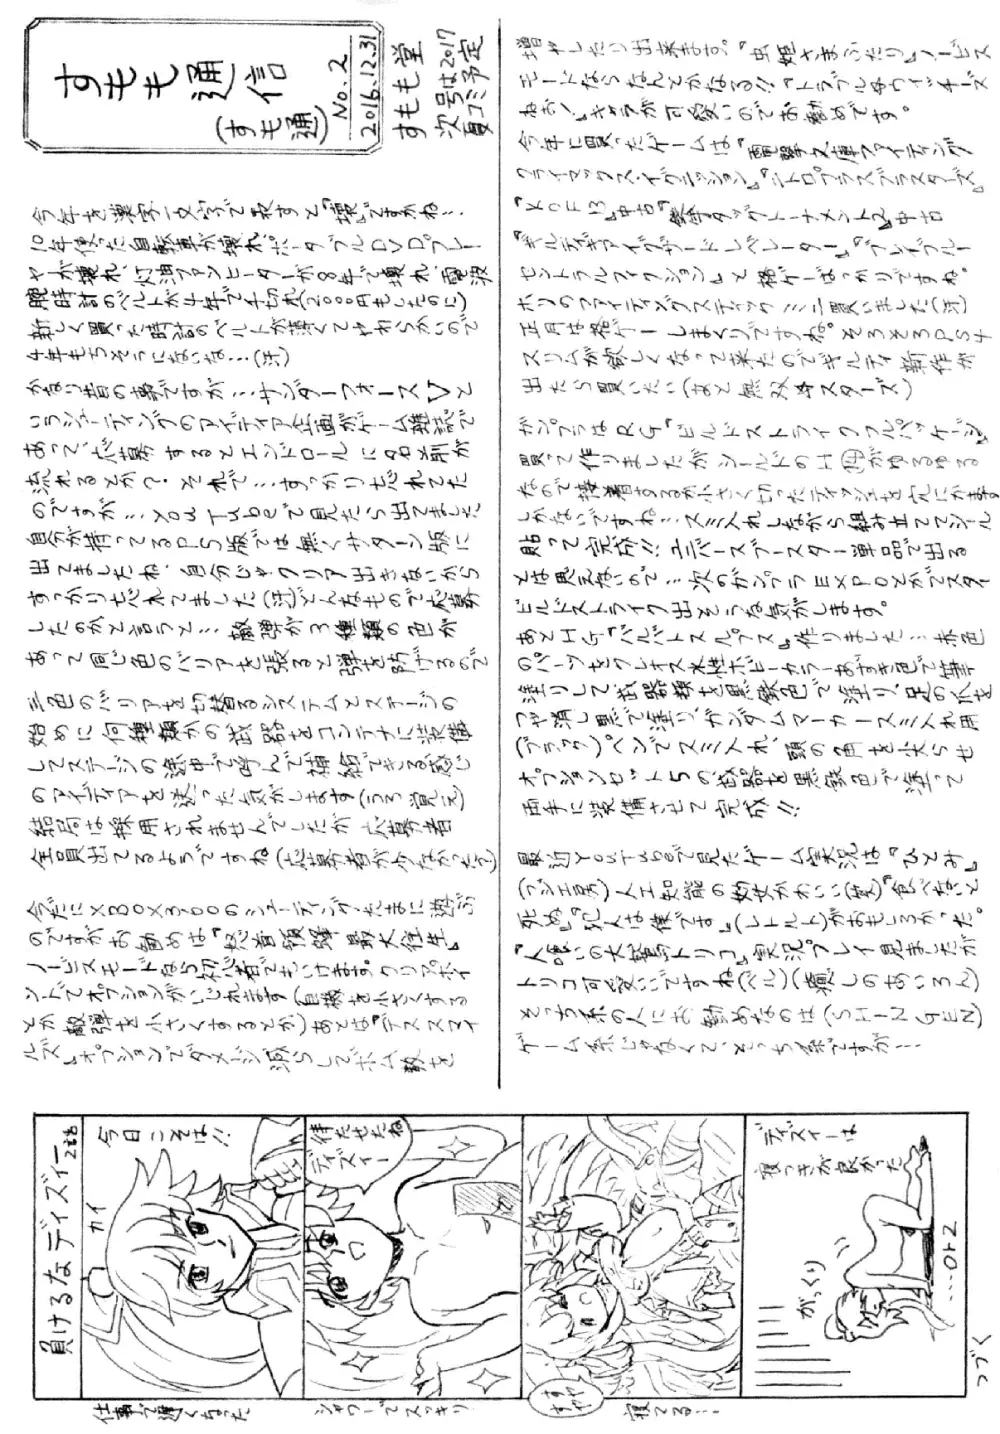 すもも通信
(すも通)
No.2
2016.12.31
すもも堂
次号は2017
夏コミ予定
今年を漢字一文字で表すと『壊』ですかね…
10年使った自転車が壊れ、ポータブルDVDプレー
ヤーが壊れ、灯油ファンヒーターが8年で壊れ、電波
腕時計のベルトが4年で千切れ(2000円もしたのに)
新しく買った時計のベルトが薄くてやわらかいので
4年もちそうにないな…(汗)
かなり昔の事ですが…サンダーフォースVと
いうシューティングのアイディア企画がゲーム雑誌で
あって、応募するとエンドロールに名前が
流れるとか?それで…すっかり忘れてた
のですが…YouTubeで見たら出てました
自分が持ってるPS版では無くサターン版に
出てましたね、自分じゃクリア出きないから
すっかり忘れてました(汗)どんなもので応募
したのかと言うと…敵弾が3種類の色が
あって同じ色のバリアを張ると弾を防げるので
三色のバリアを切替るシステムとステージの
始めに何種類かの武器をコンテナに装備
してステージの途中で呼んで補給できる感じ
のアイディアを送った気がします(うろ覚え)
結局は採用されませんでしたが応募者
全員出てるようですね(応募者が少なかった?)
今だにXBOX360のシューティングたまに遊ぶ
のですがお勧めは『怒首領蜂最大往生』
ノービスモードなら初心者でもいけます。クリアポイ
ントでオプションがいじれます(自機を小さくする
とか敵弾を小さくするとか)あとは『デススマイ
ルズ』オプションでダメージ減らしてボム数を
増やしたり出来ます。『虫姫さまふたり』ノービス
モードならなんとかなる!!『トラブル☆ウィッチーズ
ねぉ!』キャラが可愛いのでお勧めです。
今年に買ったゲームは『電撃文庫ファイティング
クライマックス・イグニッション』『ニトロプラスブラスターズ』
『KOF13』中古『鉄拳タッグトーナメント2』中古
『ギルティギアイグザードレベレーター』『ブレイブルー
セントラルフィクション』と格ゲーばっかりですね。
ホリのファイティングスティックミニ買いました(汗)
正月は格ゲーしまくりですね。そろそろPS4
スリムが欲しくなって来たのでギルティ新作が
出たら買いたい(あと無双☆スターズ)
ガンプラはRG『ビルドストライクフルパッケージ』
買って作りましたがシールドのH角がゆるゆる
なので接着するか小さく切ったティッシュを穴にかます
しかないですね…スミ入れしながら組み立ててシール
貼って完成!!ユニバースブースター単品で出る
とは思えないので…次のガンプラEXPOとかでスタ
ビルドストライク出そうな気がします。
あとHG『バルバトスルプス』作りました…赤色
のパーツをクレオス水性ホビーカラーあずき色で筆
塗りして武器類を黒鉄色で塗り、足の穴を
つや消し黒で塗り、ガンダムマーカースミ入れ用
(ブラウン)ペンでスミ入れ、頭の角を尖らせ
オプションセット5の武器を黒鉄色で塗って
両手に装備させて完成!!
最近YouTubeで見たゲーム実況は『ひとみ』
(フジエ房)人工知能の幼女かわいい(笑)『食べないと
死ぬ』『犯人は僕です』(レトルト)がおもしろかった。
『人喰いの大鷲トリコ』実況プレイ見ましたが
トリコ可愛いですね(ベル)(癒しのあいろん)
そっち系の人にお勧めなのは(SHINGEN)
ゲーム系じゃなくて、そっち系ですが…
負けるなディズィー
2コも
カイ
今日こそは!!
仕事で遅くなった
待たせたね
ディズィー
シャワーでスッキリ
すや
すや
寝てる…
ディズィーは
寝つきが良かった
がっくり
…orz
つづく